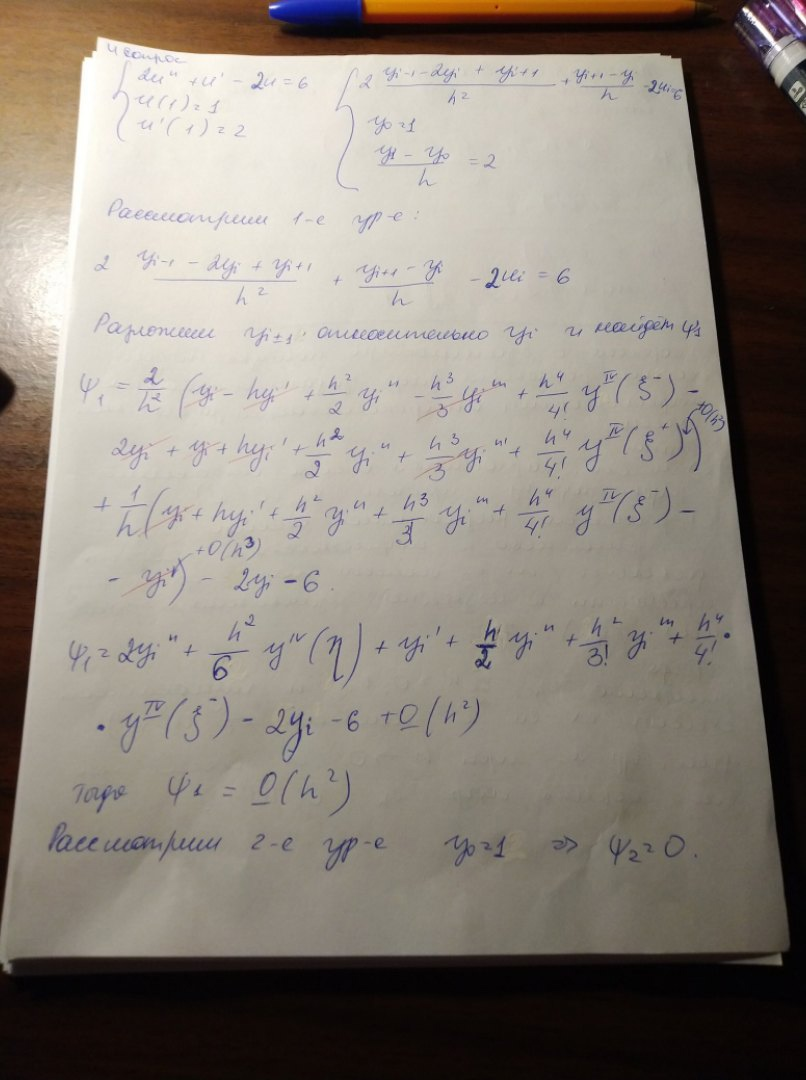 4 вопрос
{ 2u'' + u' - 2u = 6
u(1) = 1
u'(1) = 2
{ 2 (y_{i-1} - 2y_i + y_{i+1})/h^2 + (y_{i+1} - y_i)/h - 2u_i = 6
y_0 = 1
(y_1 - y_0)/h = 2
Рассмотрим 1-е ур-е:
2 (y_{i-1} - 2y_i + y_{i+1})/h^2 + (y_{i+1} - y_i)/h - 2u_i = 6
Разложим y_{i±1} относительно y_i и найдём ψ_1
ψ_1 = 2/h^2 (y_i - hy_i' + h^2/2 y_i'' - h^3/3 y_i''' + h^4/4! y^{IV}(ξ^-) -
2y_i + y_i + hy_i' + h^2/2 y_i'' + h^3/3 y_i''' + h^4/4! y^{IV}(ξ^+) + O(h^3))
+ 1/h (y_i + hy_i' + h^2/2 y_i'' + h^3/3! y_i''' + h^4/4! y^{IV}(ξ^-) -
- y_i + O(h^3)) - 2y_i - 6.
ψ_1 = 2y_i'' + h^2/6 y^{IV}(η) + y_i' + h/2 y_i'' + h^2/3! y_i''' + h^4/4! ·
· y^{IV}(ξ^-) - 2y_i - 6 + O(h^2)
Тогда ψ_1 = O(h^2)
Рассмотрим 2-е ур-е y_0 = 1 => ψ_2 = 0.